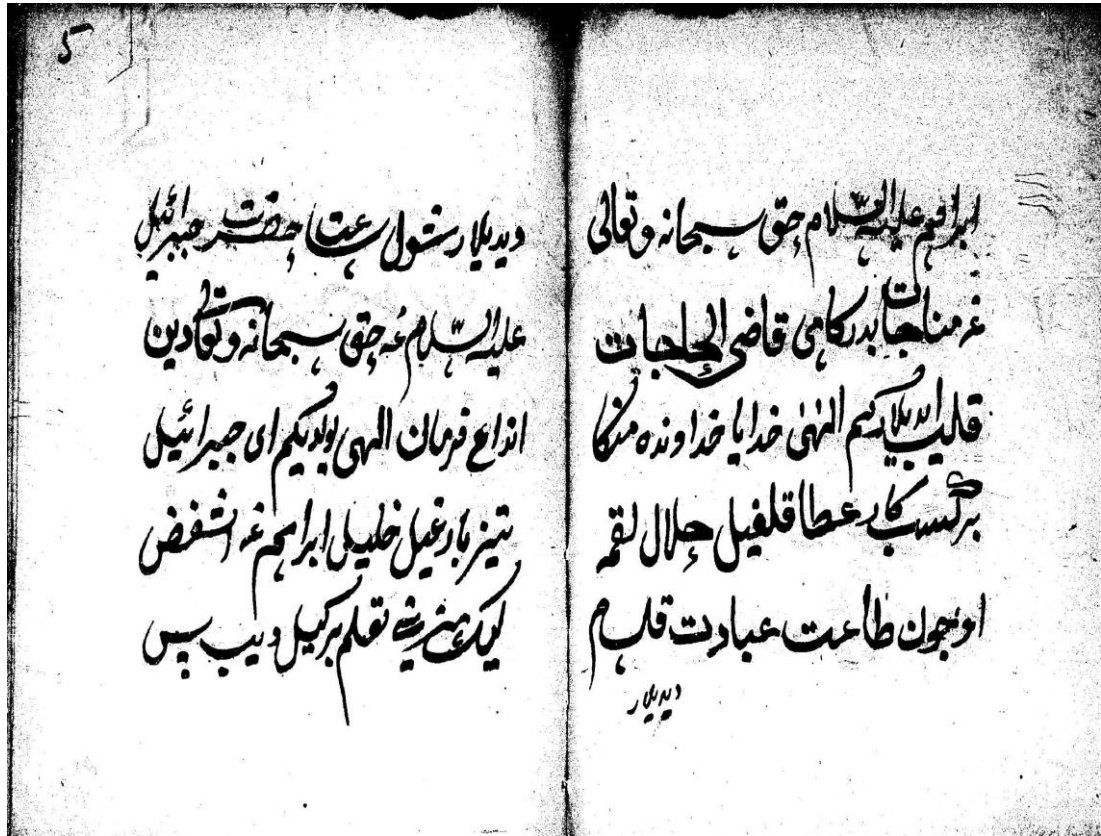 ابراهیم علیه السلام حق سبحانه و تعالی
غه مناجات بدرکاهی قاضی الحاجات
قلیب ایدیلار کیم الهی خدایا خداونده منکا
بر کسب کار عطا قلغیل حلال لقمه
اوچون طاعت عبادت قلب هم
دیدیلار
5
دیدیلار رشتول ساعتا حضرت جبرائیل
علیه السلام غه حق سبحانه و تعالی دین
انداغ فرمان الهی بولدیکیم ای جبرائیل
تیز بارغیل خلیل ابراهیم غه شفض
لیک هنرینی تعلم برکیل دیب پس